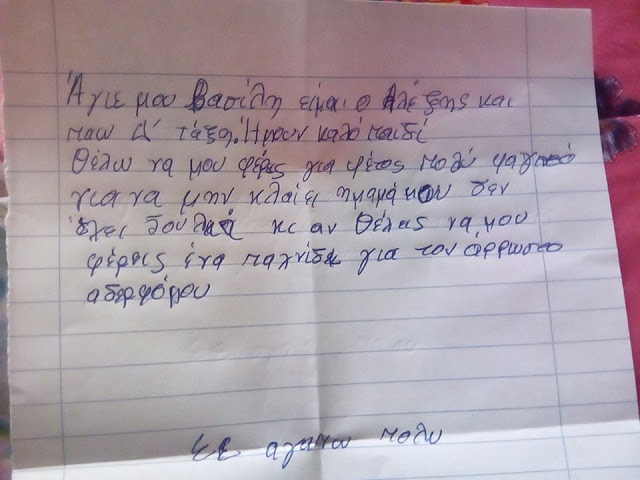 Άγιε μου Βασίλη είμαι ο Αλέξης και
παω Δ' τάξη. Ήμουν καλό παιδί
Θέλω να μου φέρεις για φέτος πολύ φαγητό
για να μην κλαίει η μαμά μου δεν
έχει δουλειά κι αν θέλεις να μου
φέρεις ένα παιχνίδι για τον άρρωστο
αδερφό μου
ΣΕ αγαπω πολυ